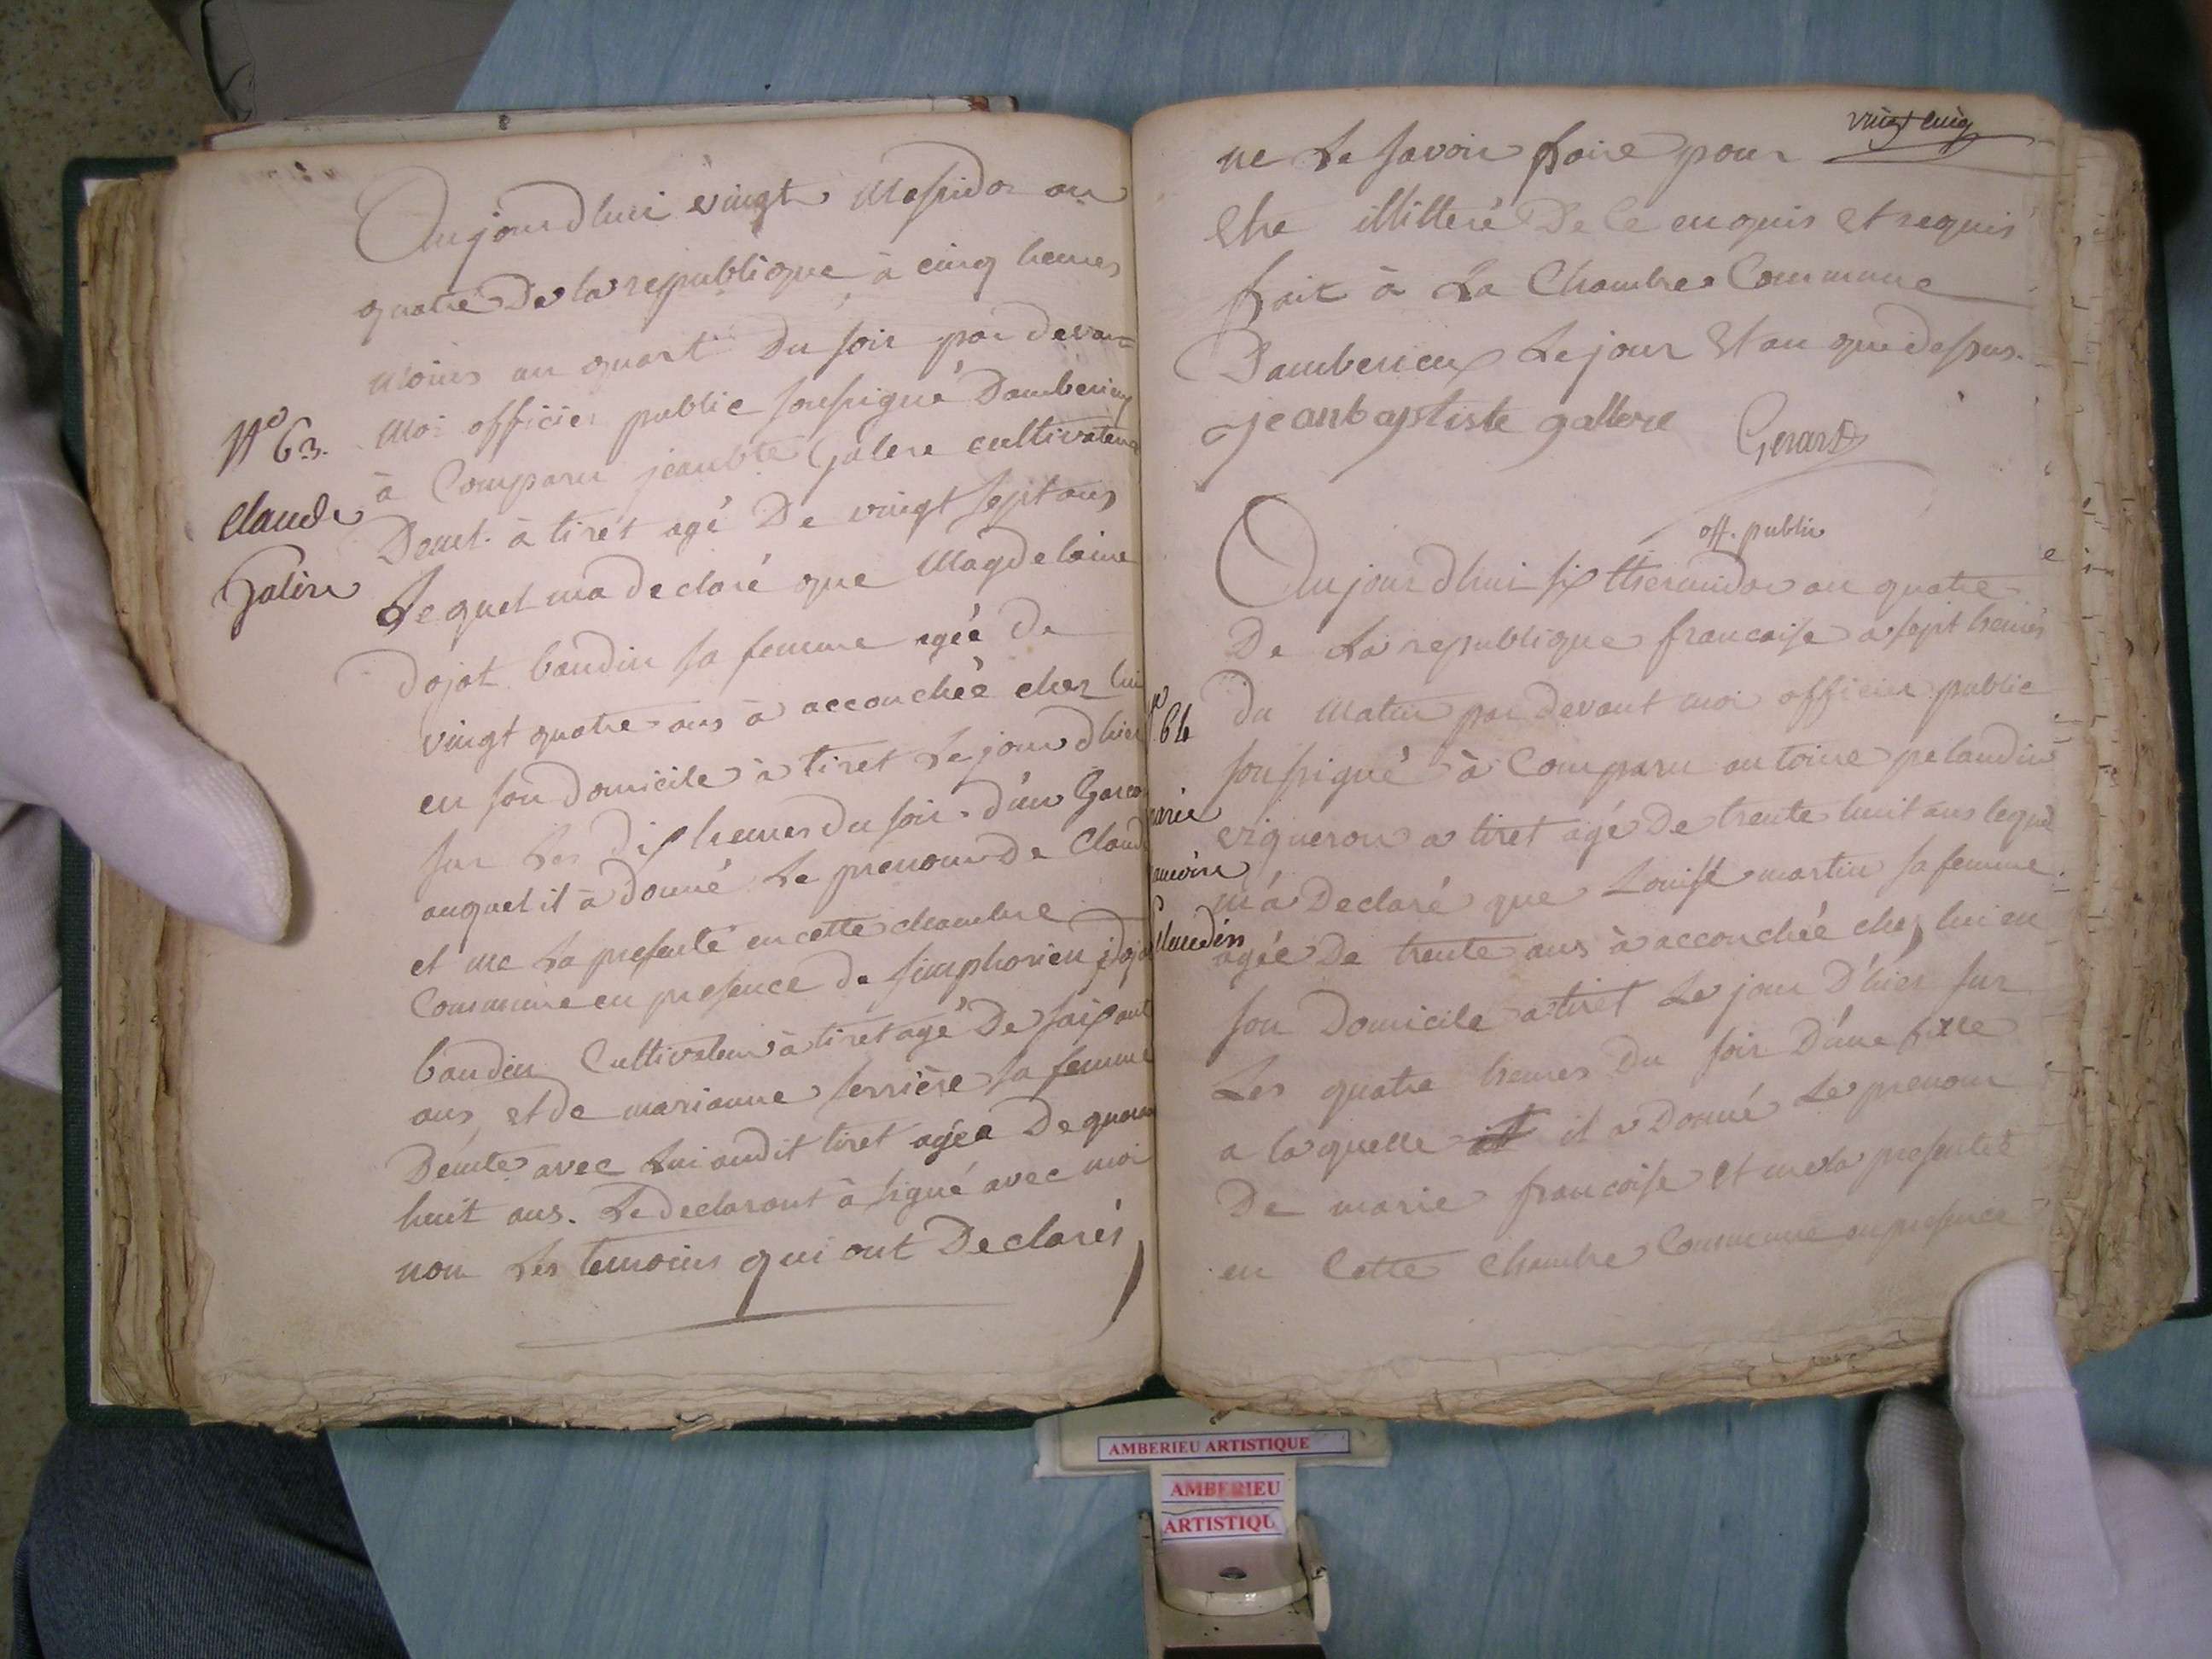 Aujourdhui vingt Messidor an
quatre De la republique à cinq heures
moins un quart Du soir par devant
N° 63.
Claude
Galere
moi officier public soussigné Damberieux
à Comparu jean bte Galere cultivateur
Demt. à tiret agé De vingt sept ans
Lequel ma declaré que Magdelaine
dojat baudin sa femme agée De
vingt quatre ans à accouchée chez lui
en son domicile à tiret Le jour dhier
sur Les dix heures du soir d'un Garcon
auquel il à donné Le prenom De Claude
et me La presenté en cette chambre
Commune en presence De simphorien dojat
baudin Cultivateur à tiret agé De soixante
ans et de marianne serrière sa femme
Demte avec Lui audit tiret agée De quarante
huit ans. Le declarant à signé avec moi
non Les temoins qui ont Declarés
vingt cinq
ne Le savoir faire pour
Etre illitteré De ce enquis et requis
fait à La Chambre Commune
Damberieux Le jour et an que dessus.
jean baptiste gallere Gerard
off. public
Aujourdhui six thermidor an quatre
De La republique francaise a sept heures
64
marie
francoise
pelaudin
du matin par devant moi officier public
soussigné à Comparu antoine pelaudin
vigneron a tiret agé De trente huit ans lequel
m'à Declaré que Louise martin sa femme
agée De trente ans à accouchée chez lui en
son Domicile a tiret Le jour D'hier sur
Les quatre heures Du soir D'une fille
a laquelle il a Donné Le prenom
De marie francoise et me la presentée
en Cette Chambre Commune en presence
AMBERIEU ARTISTIQUE
AMBERIEU
ARTISTIQU